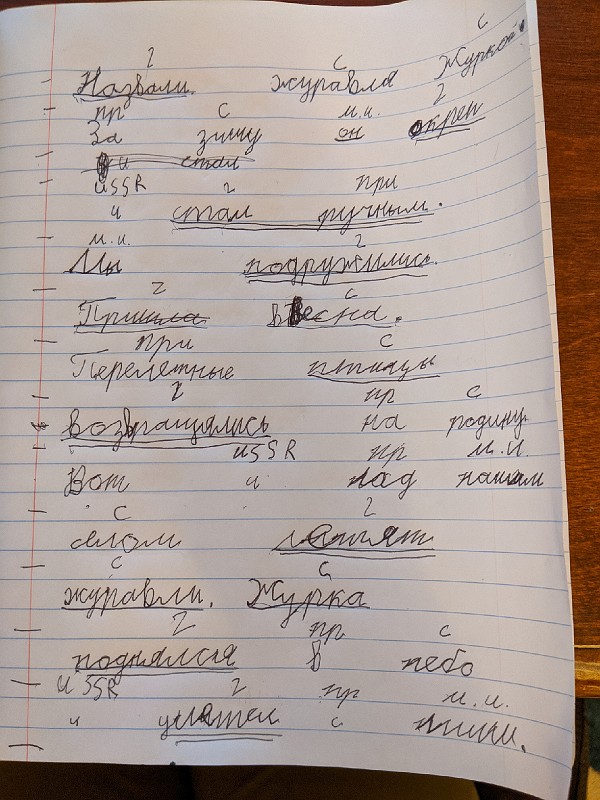 г с с
Назвали журавля Журкой.
пр с м.и. г
За зиму он окреп
и стал
USSR г при
и стал ручным.
м.и. г
Мы подружились.
г с
Пришла весна.
при с
Перелетные птицы
г пр с
возвращались на родину.
USSR пр м.и.
Вот и над нашим
с г
селом летят
с с
журавли. Журка
г пр с
поднялся в небо
USSR г пр м.и.
и улетел с ними.